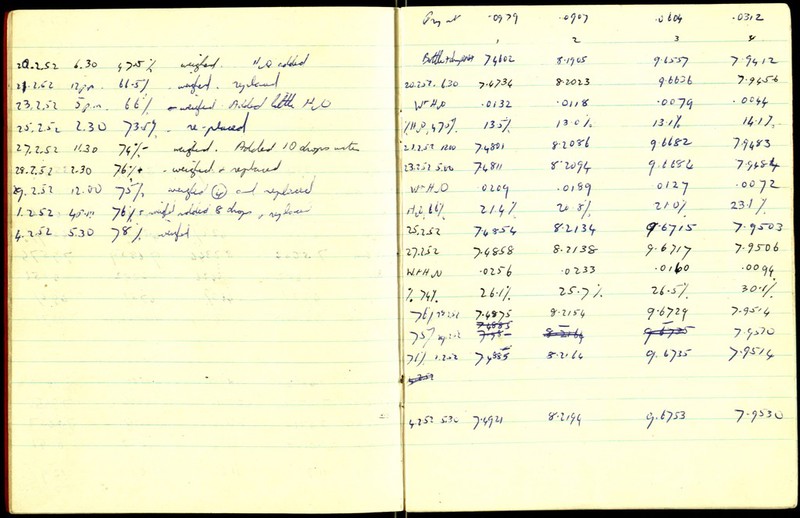 20.2.52 6.30 47.5% weighed. H2O added
21.2.52 12 p.m. 66.5% weighed. replaced
23.2.52 5 p.m. 66% - weighed Added little H2O
25.2.52 2.30 73.5% - replaced
27.2.52 11.30 74% - weighed. Added 10 drops water
28.2.52 2.30 76% + - weighed + replaced
29.2.52 12.00 75% weighed and replaced
1.2.52 76% added 8 drops, replaced
4.2.52 5.30 78% weighed
Dry wt .0979 .0907 .0604 .0312
1 2 3 4
7.4602 8.1905 9.6557 7.9412
20.2.52 6.30 7.4734 8.2023 9.6636 7.9456
Wt H2O .0132 .0118 .0079 .0044
13.5% 13.0% 13.1% 14.1%
21.2.52 12.00 7.4801 8.2086 9.6682 7.9483
23.2.52 5.00 7.4811 8.2094 9.6684 7.9484
Wt H2O 0209 .0189 0127 .0072
66% 21.4% 20.8% 21.0% 23.1%
25.2.52 7.4854 8.2134 9.6715 7.9503
27.2.52 7.4858 8.2138 9.6717 7.9506
Wt H2O .0256 .0233 .0160 .0094
% 74% 26.1% 25.7% 26.5% 30.1%
76% 7.4875 8.2154 9.6729 7.9514
75% 29.2.52 7.9520
76% 1.2.52 7.4885 8.2164 9.6735 7.9514
4.2.52 5.30 7.4921 8.2194 9.6753 7.9530